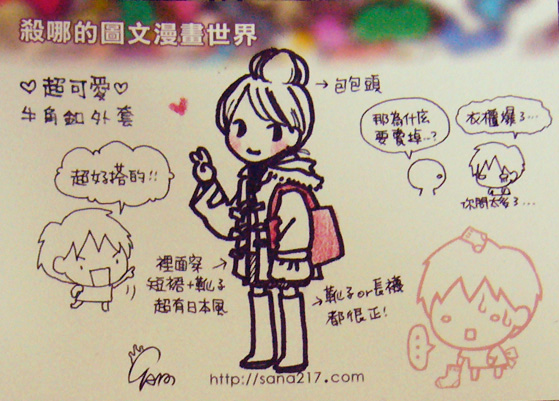 殺哪的圖文漫畫世界
♡超可愛♡
牛角釦外套
→包包頭
那為什麼
要賣掉…?
衣櫃爆了…
超好搭的!!
你問太多了…
裡面穿→
短裙+靴子
超有日本風
→靴子or長襪
都很正!
...
http://sana217.com